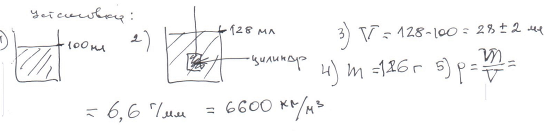 установки:
1) 100 мл 2) 128 мл цилиндр
3) V = 128-100 = 28 ± 2 мл
4) m = 126 г 5) ρ = m/V =
= 6,6 г/мм = 6600 кг/м³